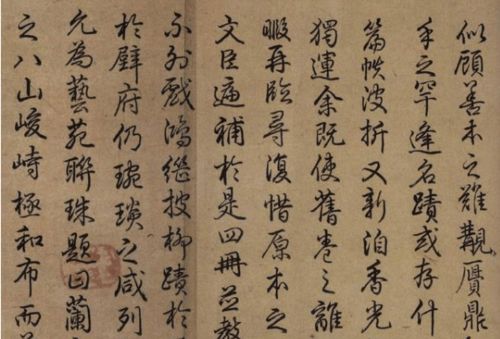 似顧善本之難覯贋鼎
手之罕逢名蹟或存什
篇帙波折又新洎香光
獨運余既使舊卷之離
暇再臨尋復惜原本之
文臣補於是四冊並教
不戲鴻繼披柳蹟於
於壁府仍琬琰之咸列
允為藝苑聯珠題曰蘭
之八山峻峙極和布而